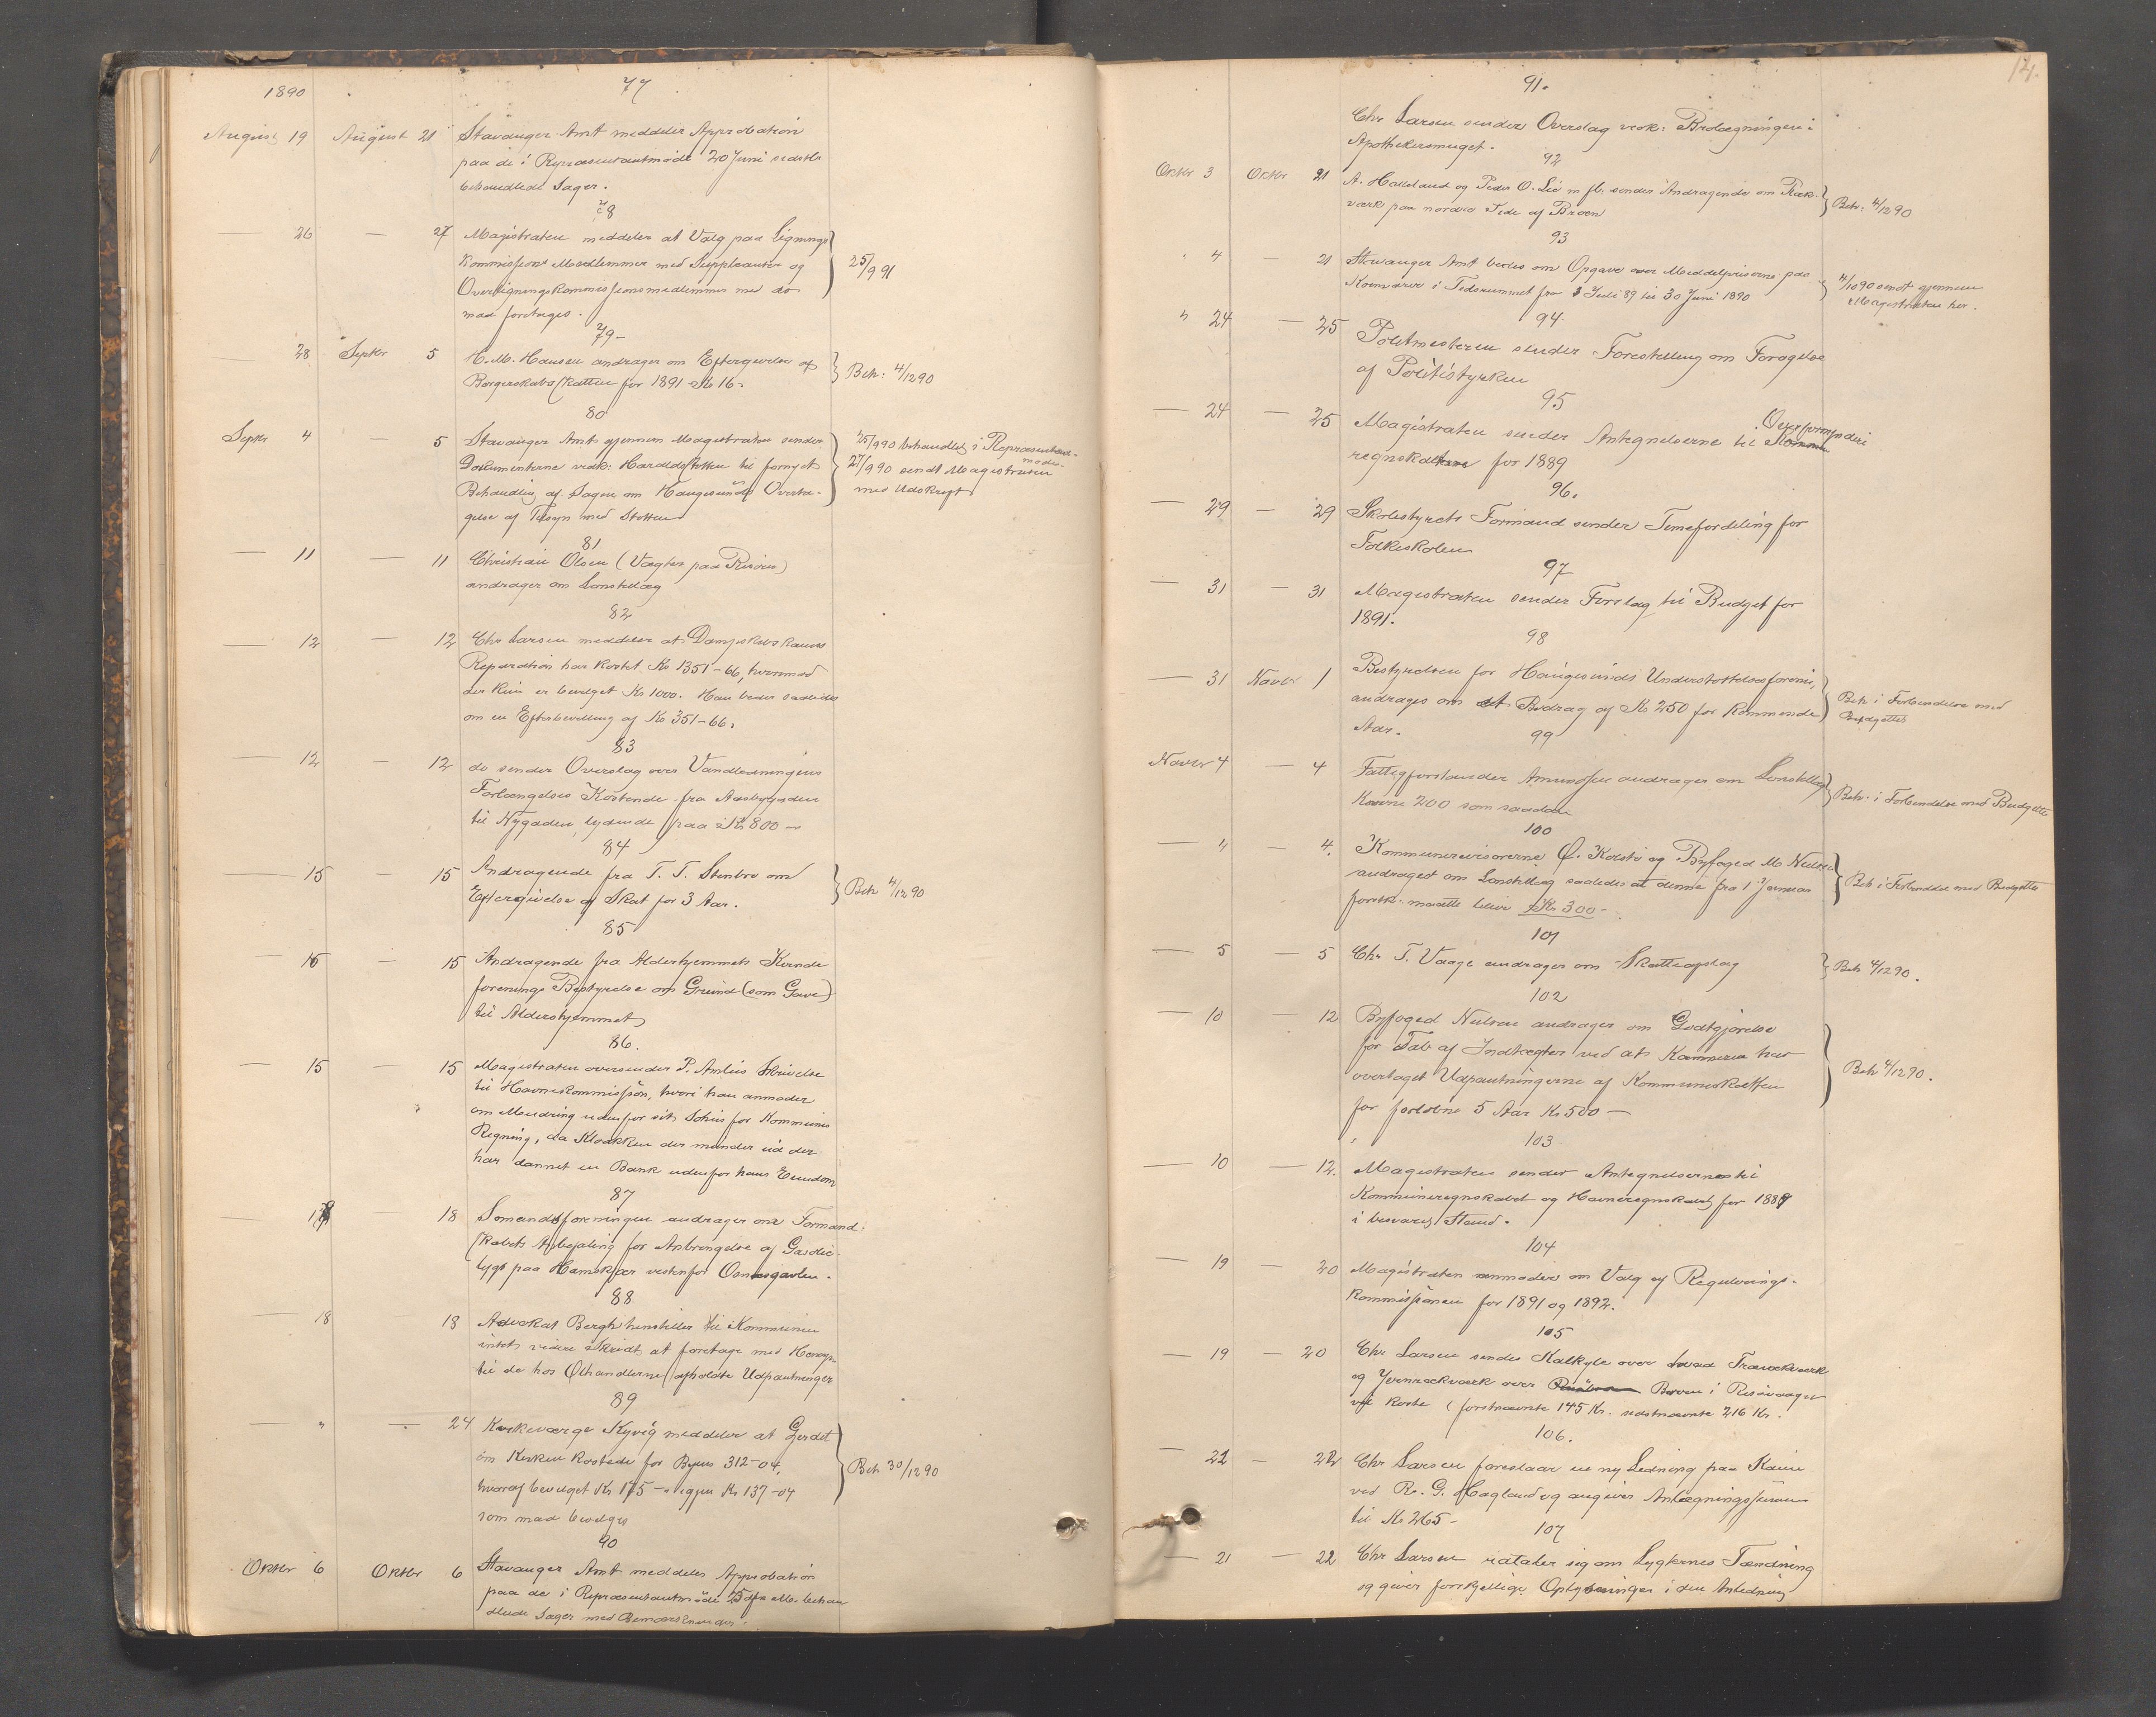 1890
77
August 19 August 21 Stavanger Amt meddeler Approbation
paa de i Repræsentantmøde 20 Juni sidstl.
behandlede Sager.
78
— 26 — 27 Magistraten meddeler at Valg paa Lignings
kommissions Medlemmer med Suppleanter og
Overligningskommissionsmedlemmer med do
maa foretages.
25/9 91
79 —
— 28 Septbr 5 H. M. Hansen andrager om Eftergivelse af
Borgerskabsskatten for 1891 Kr 16 -
Beh: 4/12 90
80
Septbr 4 — 5 Stavanger Amt gjennem Magistraten sender
Dokumenterne vedk: Haraldsstøtten til fornyet
Behandling af Sagen om Haugesunds Overta-
gelse af Tilsyn med Støtten
25/9 90 behandlet i Repræsentant-
møde.
27/9 90 sendt Magistraten
med Udskrift
81
— 11 — 11 Christian Olsen (Vægter paa Risøen)
andrager om Lønstillæg
82
— 12 — 12 Chr Larsen meddeler at Dampskibskaiens
Reparation har kostet Kr 1351-66, hvorimod
der kun er bevilget Kr 1000. Han beder saaledes
om en Efterbevilling af Kr 351-66.
83
— 12 — 12 do sender Overslag over Vandledningens
Forlængelses Kostende fra Aasbygaden
til Nygaden, lydende paa Kr 800 —
84
— 15 — 15 Andragende fra T. T. Stenbro om
Eftergivelse af Skat for 3 Aar.
Beh 4/12 90
85
— 15 — 15 Andragende fra Alderhjemmets Kvinde
forenings Bestyrelse om Grund (som Gave)
til Alderhjemmet
86.
— 15 — 15 Magistraten oversender P. Amlies Skrivelse
til Havnekommission, hvori han anmoder
om Mudring udenfor sit Søhus for Kommunens
Regning, da Kloakken der munder ud der
har dannet en Bank udenfor hans Eiendom
87
— 18 — 18 Sømandsforeningen andrager om Formand-
skabets Anbefaling for Anbringelse af Gasolie-
lygt paa Hamskjær vestenfor
88
18 18 Advokat Bergh henstiller til Kommunen
intet videre Skridt at foretage med Hensyn
til de hos Ølhandlerne afholdte Udpantninger
89
— " — 24 Kirkeværge Kyvig meddeler at Gjerdet
om Kirken kostede for Byens 312-04,
hvoraf bevilget Kr 175 - igjen Kr 137-04
som maa bevilges
Beh 30/12 90
90
Oktbr 6 Oktbr 6 Stavanger Amt meddeler Approbation
paa de i Repræsentantmøde 25 f. M. behan
dlede Sager med Bemærkninger.
14.
91.
Chr Larsen sender Overslag vedk: Brolægningen i
Apothekersmuget.
92
Oktbr 3 Oktbr 21 A. Hauseland og Peder O. Lie m fl. sender Andragende om Ræk-
værk paa nordre Side af Broen
Beh: 4/12 90
93
" 4 — 21 Stavanger Amt bedes om Opgave over Middelpriserne paa
Kornvarer i Tidsrummet fra 1 Juli 89 til 30 Juni 1890
4/10 90 sendt gjennem
Magistraten her.
94
" 24 — 25 Politmesteren sender Forestilling om Forøgelse
af Politistyrken
95
— 24 — 25 Magistraten sender Antegnelserne til Overformynderi
regnskabet for 1889
96.
— 29 — 29 Skolestyrets Formand sender Timefordeling for
Folkeskolen
97
— 31 — 31 Magistraten sender Forslag til Budget for
1891.
98
— 31 Novbr 1 Bestyrelsen for Haugesunds Understøttelsesforening
andrager om et Bidrag af Kr 250 for kommende
Aar.
Beh i Forbindelse med
Budgettet
99
Novbr 4 — 4 Fattigforstander Amundsen andrager om Lønstillæg
Kroner 200 som saadan
Beh: i Forbindelse med Budgettet
100
— " — 4. Kommunerevisorerne O. Kolstø og Byfoged M Nielsen
andrager om Lønstillæg saaledes at denne fra 1 Januar
førstk: maatte blive Kr 300 -
Beh i Forbindelse med Budgettet
101
— 5 — 5 Chr T. Vaage andrager om Skatteafslag
Beh 4/12 90.
102
— 10 — 12 Byfoged Nielsen andrager om Godtgjørelse
for Tab af Indtægter ved at Kæmneren har
overtaget Udpantningerne af Kommuneskatten
for forløbne 5 Aar Kr 500 —
Beh 4/12 90.
103
— 10 — 12. Magistraten sender Antegnelserne til
Kommuneregnskabet og Havneregnskabet for 1889
i besvaret Stand.
104
— 19 — 20 Magistraten anmoder om Valg af Regulerings-
kommissionen for 1891 og 1892.
105
— 19 — 20 Chr Larsen sender Kalkyle over hvad Trærækværk
og Jernrækværk over Broen i Risøvaagen
vil koste (førstnævnte 145 Kr. sidstnævnte 216 Kr.
106.
— 22 — 22 Chr Larsen foreslaar en ny Ledning paa Kaien
ved R. G. Hagland og angiver Anlægningssummen
til Kr 265 -
107
— 21 — 22 Chr Larsen udtaler sig om Lygternes Tænding
og giver forskjellige Oplysninger i den Anledning